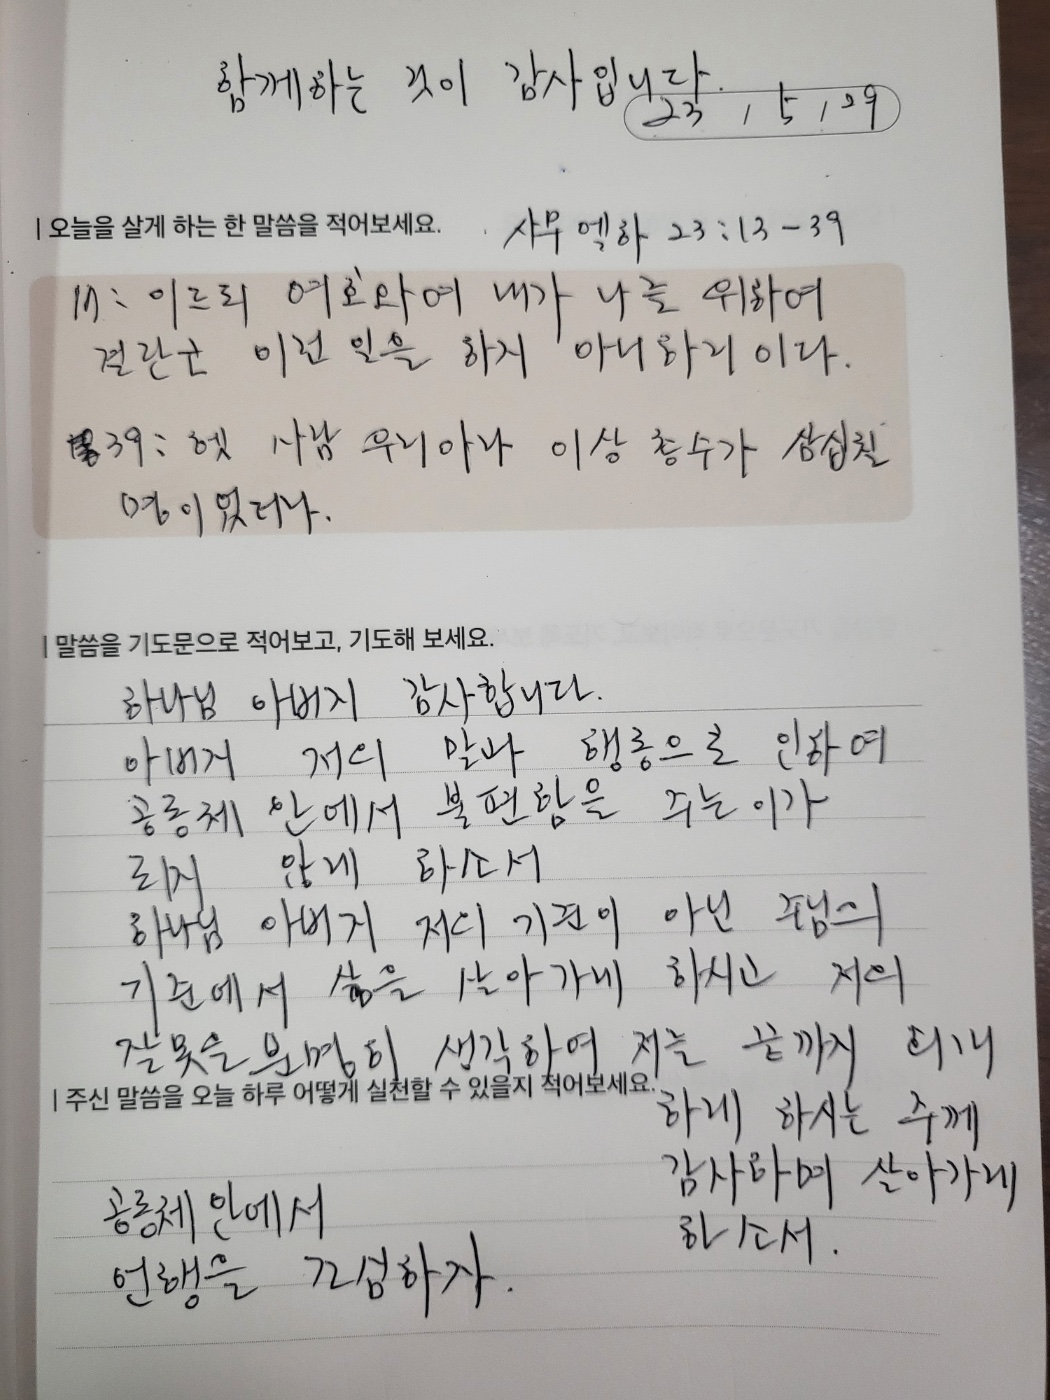 함께하는 것이 감사입니다.
23 / 5 / 29
| 오늘을 살게 하는 한 말씀을 적어보세요.
사무엘하 23:13-39
17: 이르되 여호와여 내가 나를 위하여
결단코 이런 일을 하지 아니하리이다.
39: 헷 사람 우리아라 이상 총수가 삼십칠
명이었더라.
| 말씀을 기도문으로 적어보고, 기도해 보세요.
하나님 아버지 감사합니다.
아버지 저의 말과 행동으로 인하여
공동체 안에서 불편함을 주는 이가
되지 않게 하소서
하나님 아버지 저의 기준이 아닌 주님의
기준에서 삶을 살아가게 하시고 저의
잘못을 분명히 생각하여 저를 끝까지 인내
하게 하시는 주께
감사하며 살아가게
하소서.
| 주신 말씀을 오늘 하루 어떻게 실천할 수 있을지 적어보세요.
공동체 안에서
언행을 조심하자.